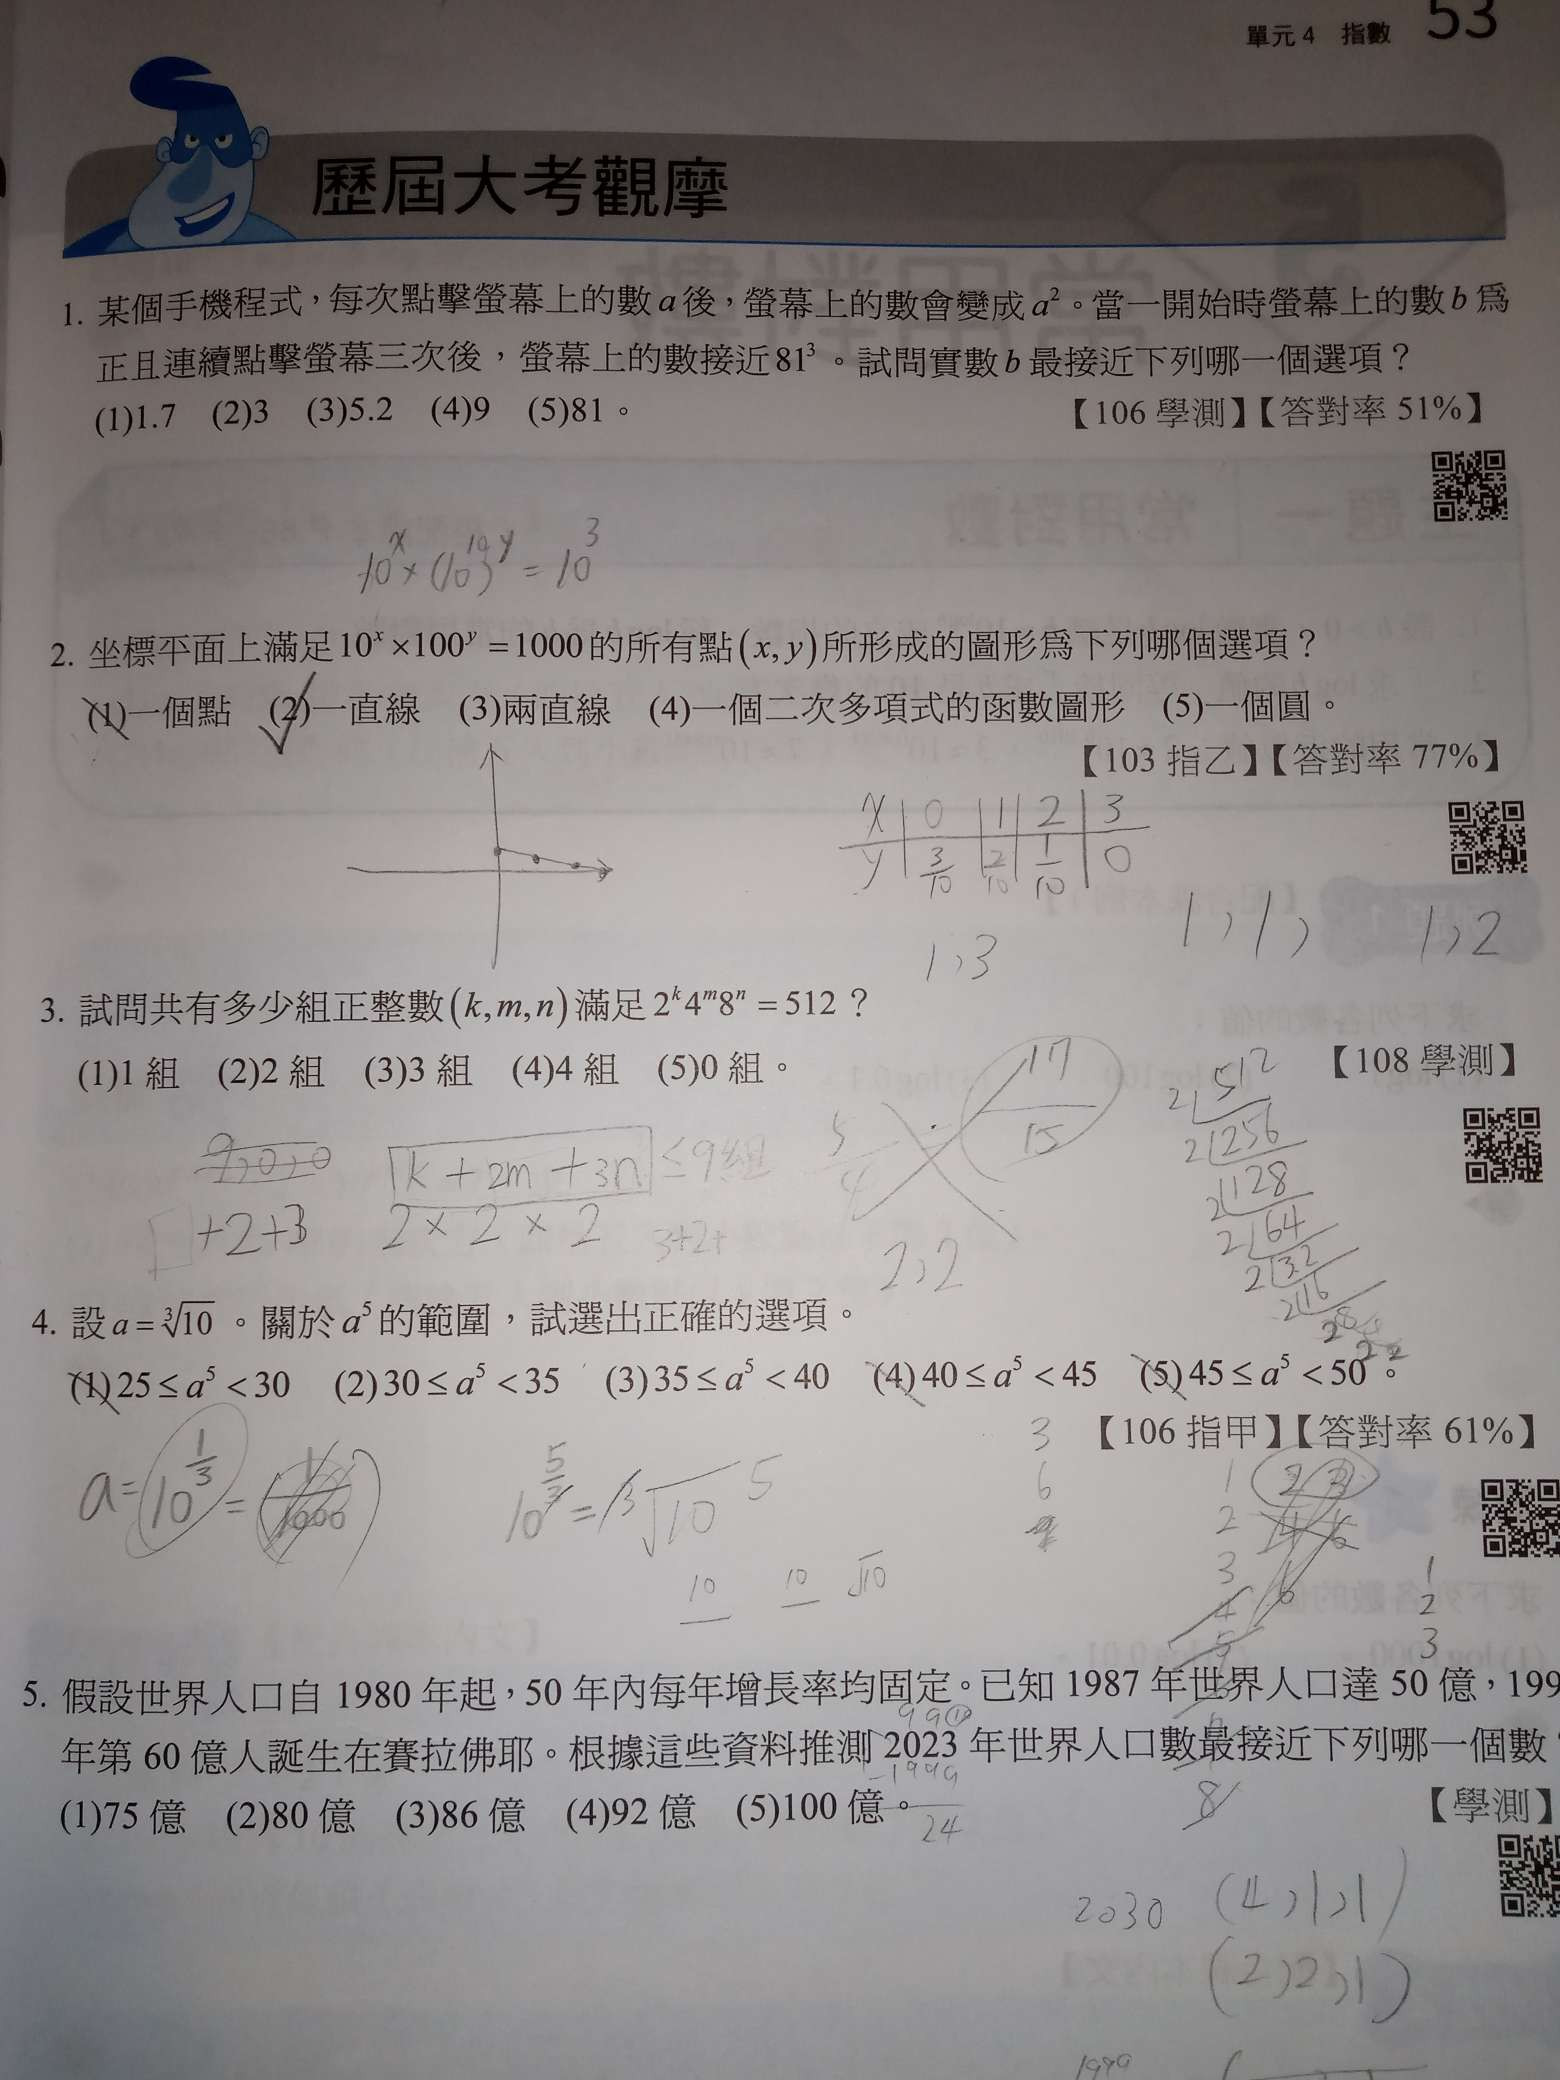 單元 4 指數 53
歷屆大考觀摩
1. 某個手機程式，每次點擊螢幕上的數 a 後，螢幕上的數會變成 a²。當一開始時螢幕上的數 b 為
正且連續點擊螢幕三次後，螢幕上的數接近 81³。試問實數 b 最接近下列哪一個選項？
(1)1.7 (2)3 (3)5.2 (4)9 (5)81。 【106 學測】【答對率 51%】
10ˣ × (10¹⁰)ʸ = 10³
2. 坐標平面上滿足 10ˣ ×100ʸ =1000 的所有點 (x, y) 所形成的圖形為下列哪個選項？
(1)一個點 (2)一直線 (3)兩直線 (4)一個二次多項式的函數圖形 (5)一個圓。
【103 指乙】【答對率 77%】
x 0 1 2 3
y 3/10 2/10 1/10 0
1,1, 1,2
1,3
3. 試問共有多少組正整數 (k, m, n) 滿足 2ᵏ4ᵐ8ⁿ = 512？
(1)1 組 (2)2 組 (3)3 組 (4)4 組 (5)0 組。 【108 學測】
17
15
5
4
2 512
2 256
2 128
2 64
2 32
2 16
9,0,0
k + 2m + 3n ≤ 9
+2+3
2 × 2 × 2
3+2+
2,2
4. 設 a = ³√10。關於 a⁵ 的範圍，試選出正確的選項。
(1) 25 ≤ a⁵ < 30 (2) 30 ≤ a⁵ < 35 (3) 35 ≤ a⁵ < 40 (4) 40 ≤ a⁵ < 45 (5) 45 ≤ a⁵ < 50。
【106 指甲】【答對率 61%】
a = 10^(1/3) = 1/1000
10^(5/3) = ³√10 5
10 10 √10
3
6
1
2
3
4
5
1
2
3
5. 假設世界人口自 1980 年起，50 年內每年增長率均固定。已知 1987 年世界人口達 50 億，199
年第 60 億人誕生在賽拉佛耶。根據這些資料推測 2023 年世界人口數最接近下列哪一個數
-1999
(1)75 億 (2)80 億 (3)86 億 (4)92 億 (5)100 億。 【學測】
24
8
2030
(4,1,1)
(2,2,1)
1999